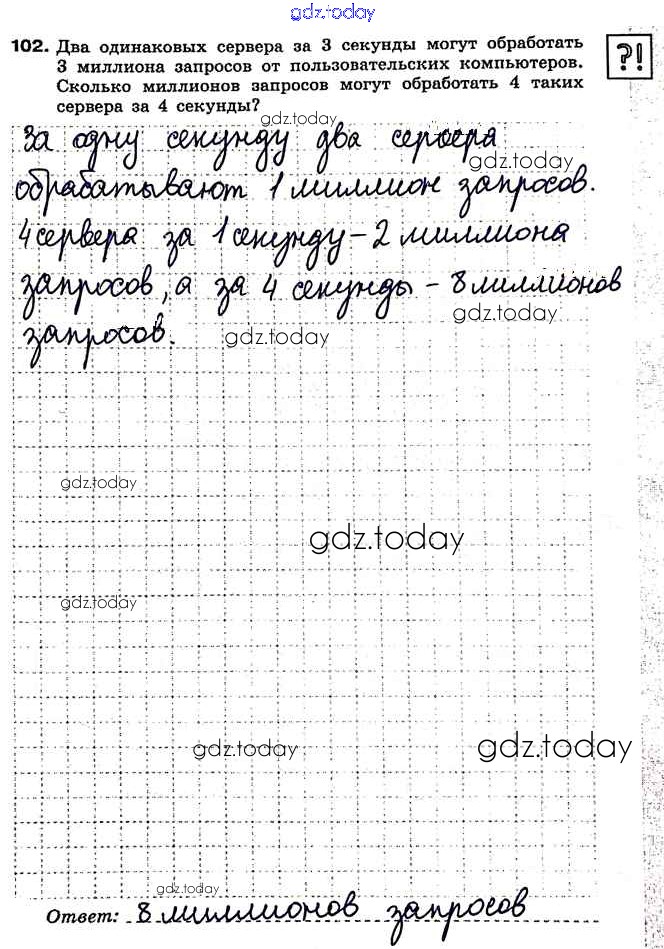 gdz.today
102. Два одинаковых сервера за 3 секунды могут обработать
3 миллиона запросов от пользовательских компьютеров.
Сколько миллионов запросов могут обработать 4 таких
сервера за 4 секунды?
?!
gdz.today
За одну секунду два сервера
gdz.today
обрабатывают 1 миллион запросов.
4 сервера за 1 секунду - 2 миллиона
запросов, а за 4 секунды - 8 миллионов
gdz.today
запросов.
gdz.today
gdz.today
gdz.today
gdz.today
gdz.today
gdz.today
gdz.today
Ответ: 8 миллионов запросов